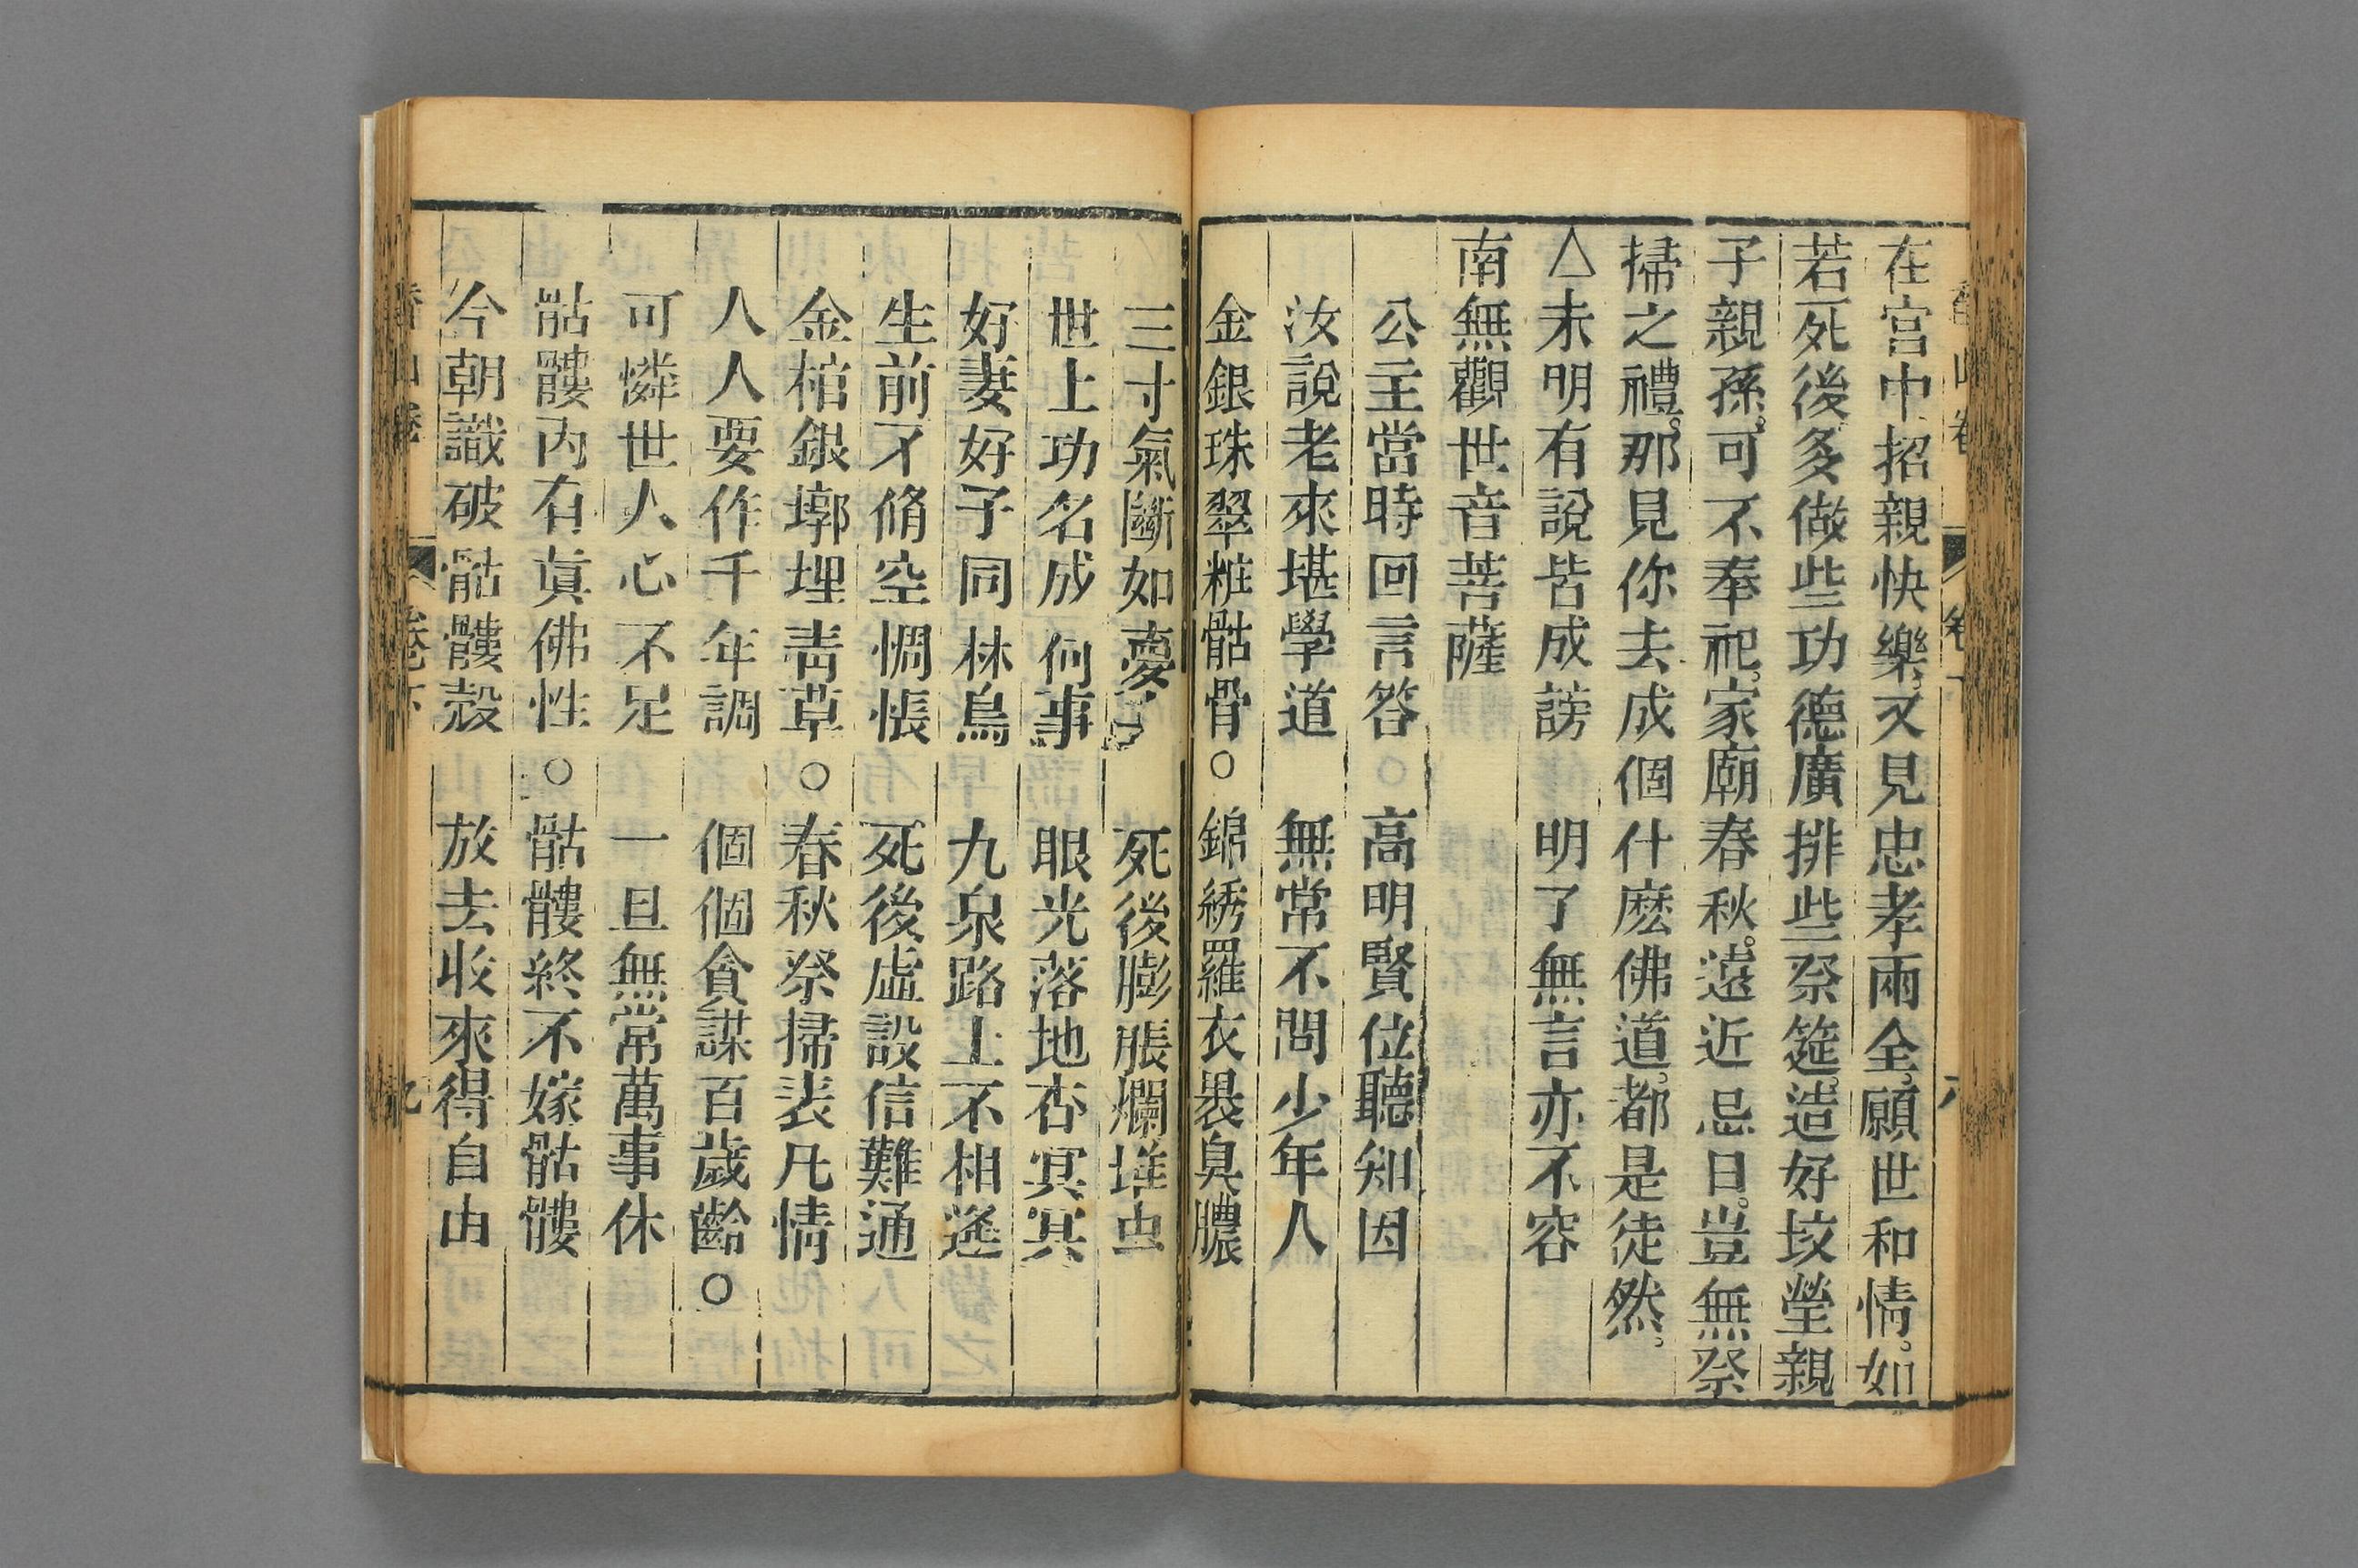 在宮中招親快樂又見忠孝兩全願世和情如
若死後多做些功德廣排些祭筵造好坟塋親
子親孫可不奉祀家廟春秋遠近忌日豈無祭
掃之禮那見你去成個什麽佛道都是徒然
△未明有說皆成謗 明了無言亦不容
南無觀世音菩薩
公主當時回言答○高明賢位聽知因
汝說老來堪學道 無常不問少年人
金銀珠翠粧骷骨○錦綉羅衣褁臭膿
三寸氣斷如夢 死後膨脹爛堆虫
世上功名成何事 眼光落地杳冥冥
好妻好子同林鳥 九泉路上不相逢
生前不脩空惆悵 死後虛設信難通
金棺銀墎埋靑草○春秋祭掃裝凡情
人人要作千年調 個個貪謀百歲齡○
可憐世人心不足 一旦無常萬事休
骷髏內有眞佛性○骷髏終不嫁骷髏
今朝識破骷髏殼 放去收來得自由